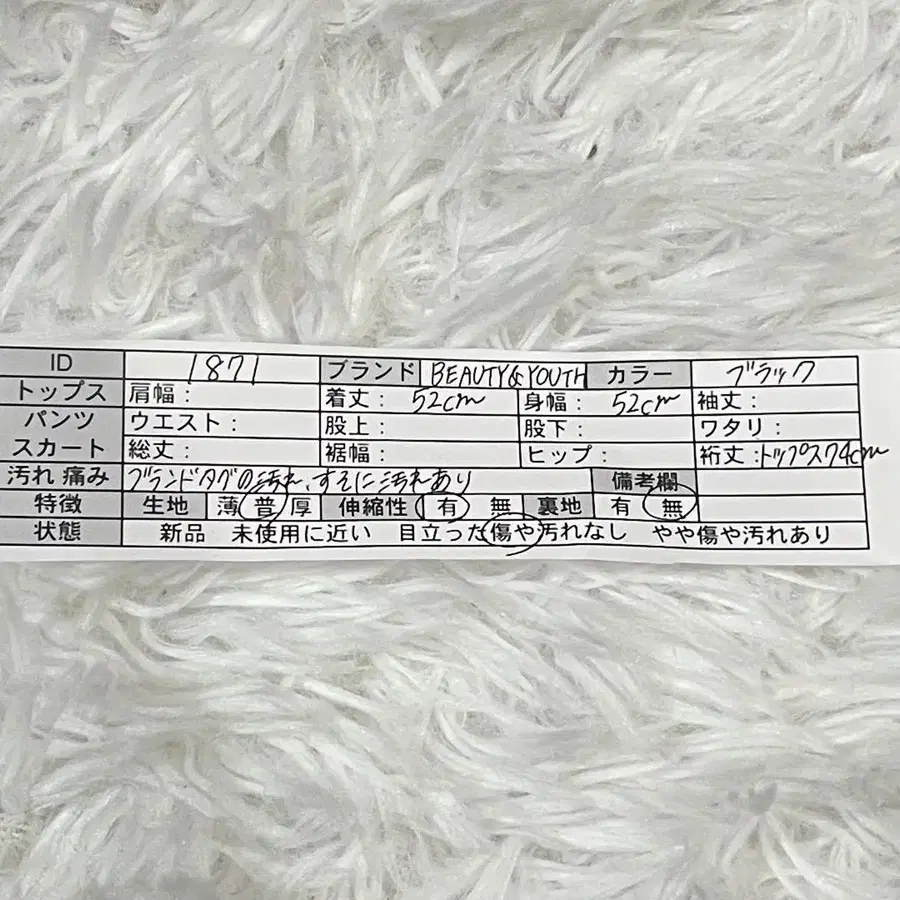 ID 1871 ブランド BEAUTY&YOUTH カラー ブラック
トップス 肩幅： 着丈： 52cm 身幅： 52cm 袖丈：
パンツ ウエスト： 股上： 股下： ワタリ：
スカート 総丈： 裾幅： ヒップ： 裄丈：トップス74cm
汚れ 痛み ブランドタグの汚れ、すそに汚れあり 備考欄
特徴 生地 薄 普 厚 伸縮性 有 無 裏地 有 無
状態 新品 未使用に近い 目立った傷や汚れなし やや傷や汚れあり